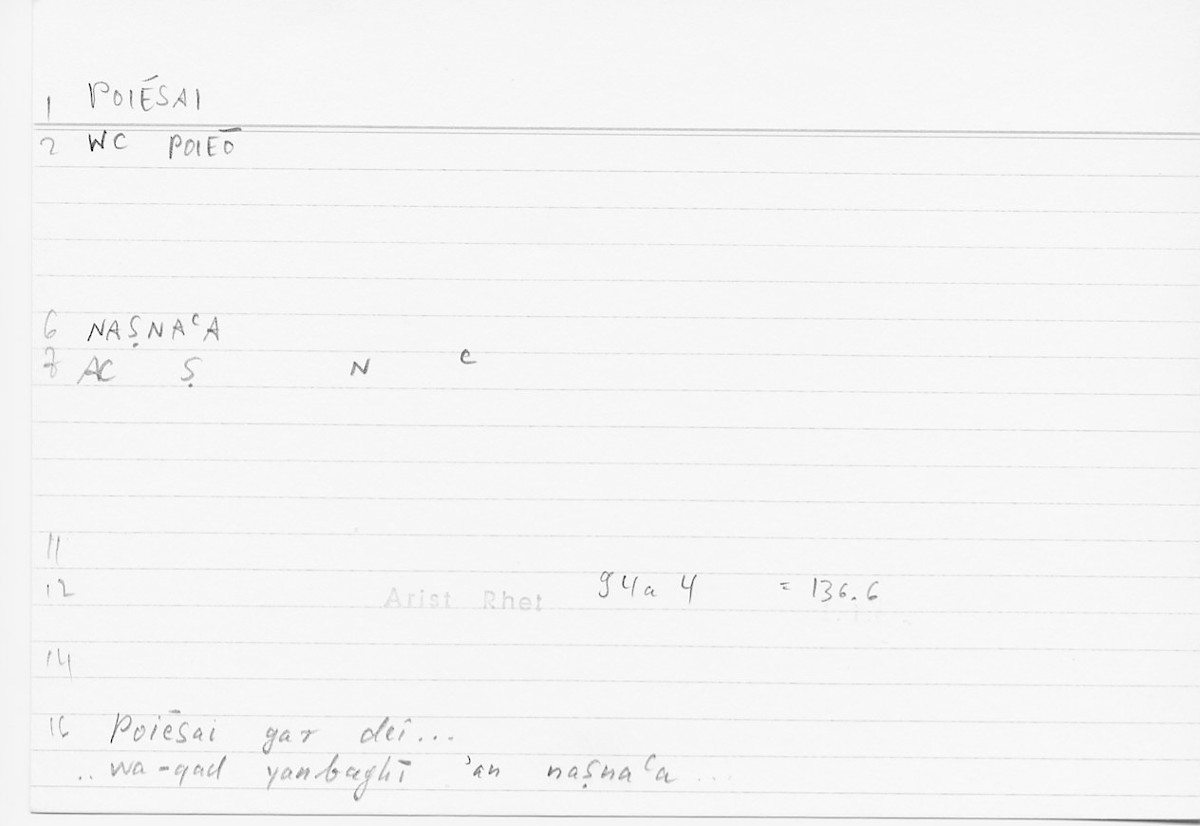 1 POIĒSAI
2 WC POIEŌ
6 NAṢNAᶜA
7 AC Ṣ N ᶜ
11
12 Arist Rhet 94a 4 = 136.6
14
16 Poiēsai gar deî...
.. wa-qad yanbaghī ʾan naṣnaᶜa ...